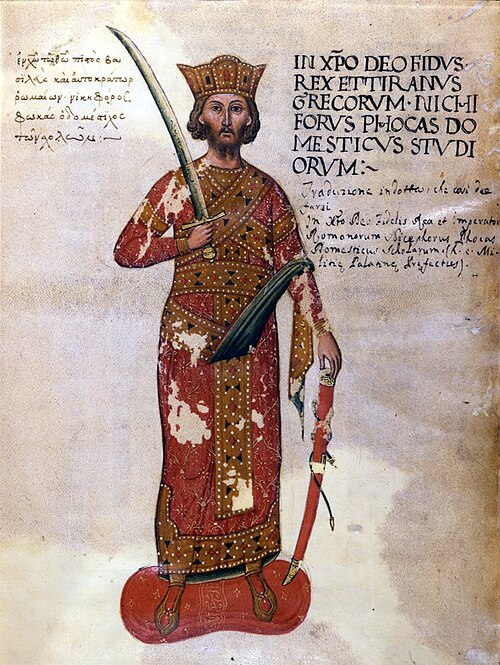 ἐν χω τῶ θω πιστὸς βα
σιλεὺς καὶ αὐτοκράτωρ
ρωμαίων· νικηφόρος·
φωκᾶς ὁ δομέστιχος
τῶν σχολῶν:~
IN XPO DEO FIDVS·
REX ET TIRANVS
GRECORVM· NICHI
FORVS PHOCAS DO
MESTICVS STVDI
ORVM:~
Traduzione indotta, che così dee
farsi
In Xto Deo Fidelis Rex et Imperator
Romanorum Nicephorus Phocas
Domesticus Scholarum (h. e. Mi-
litię Palatinę Pręfectus).